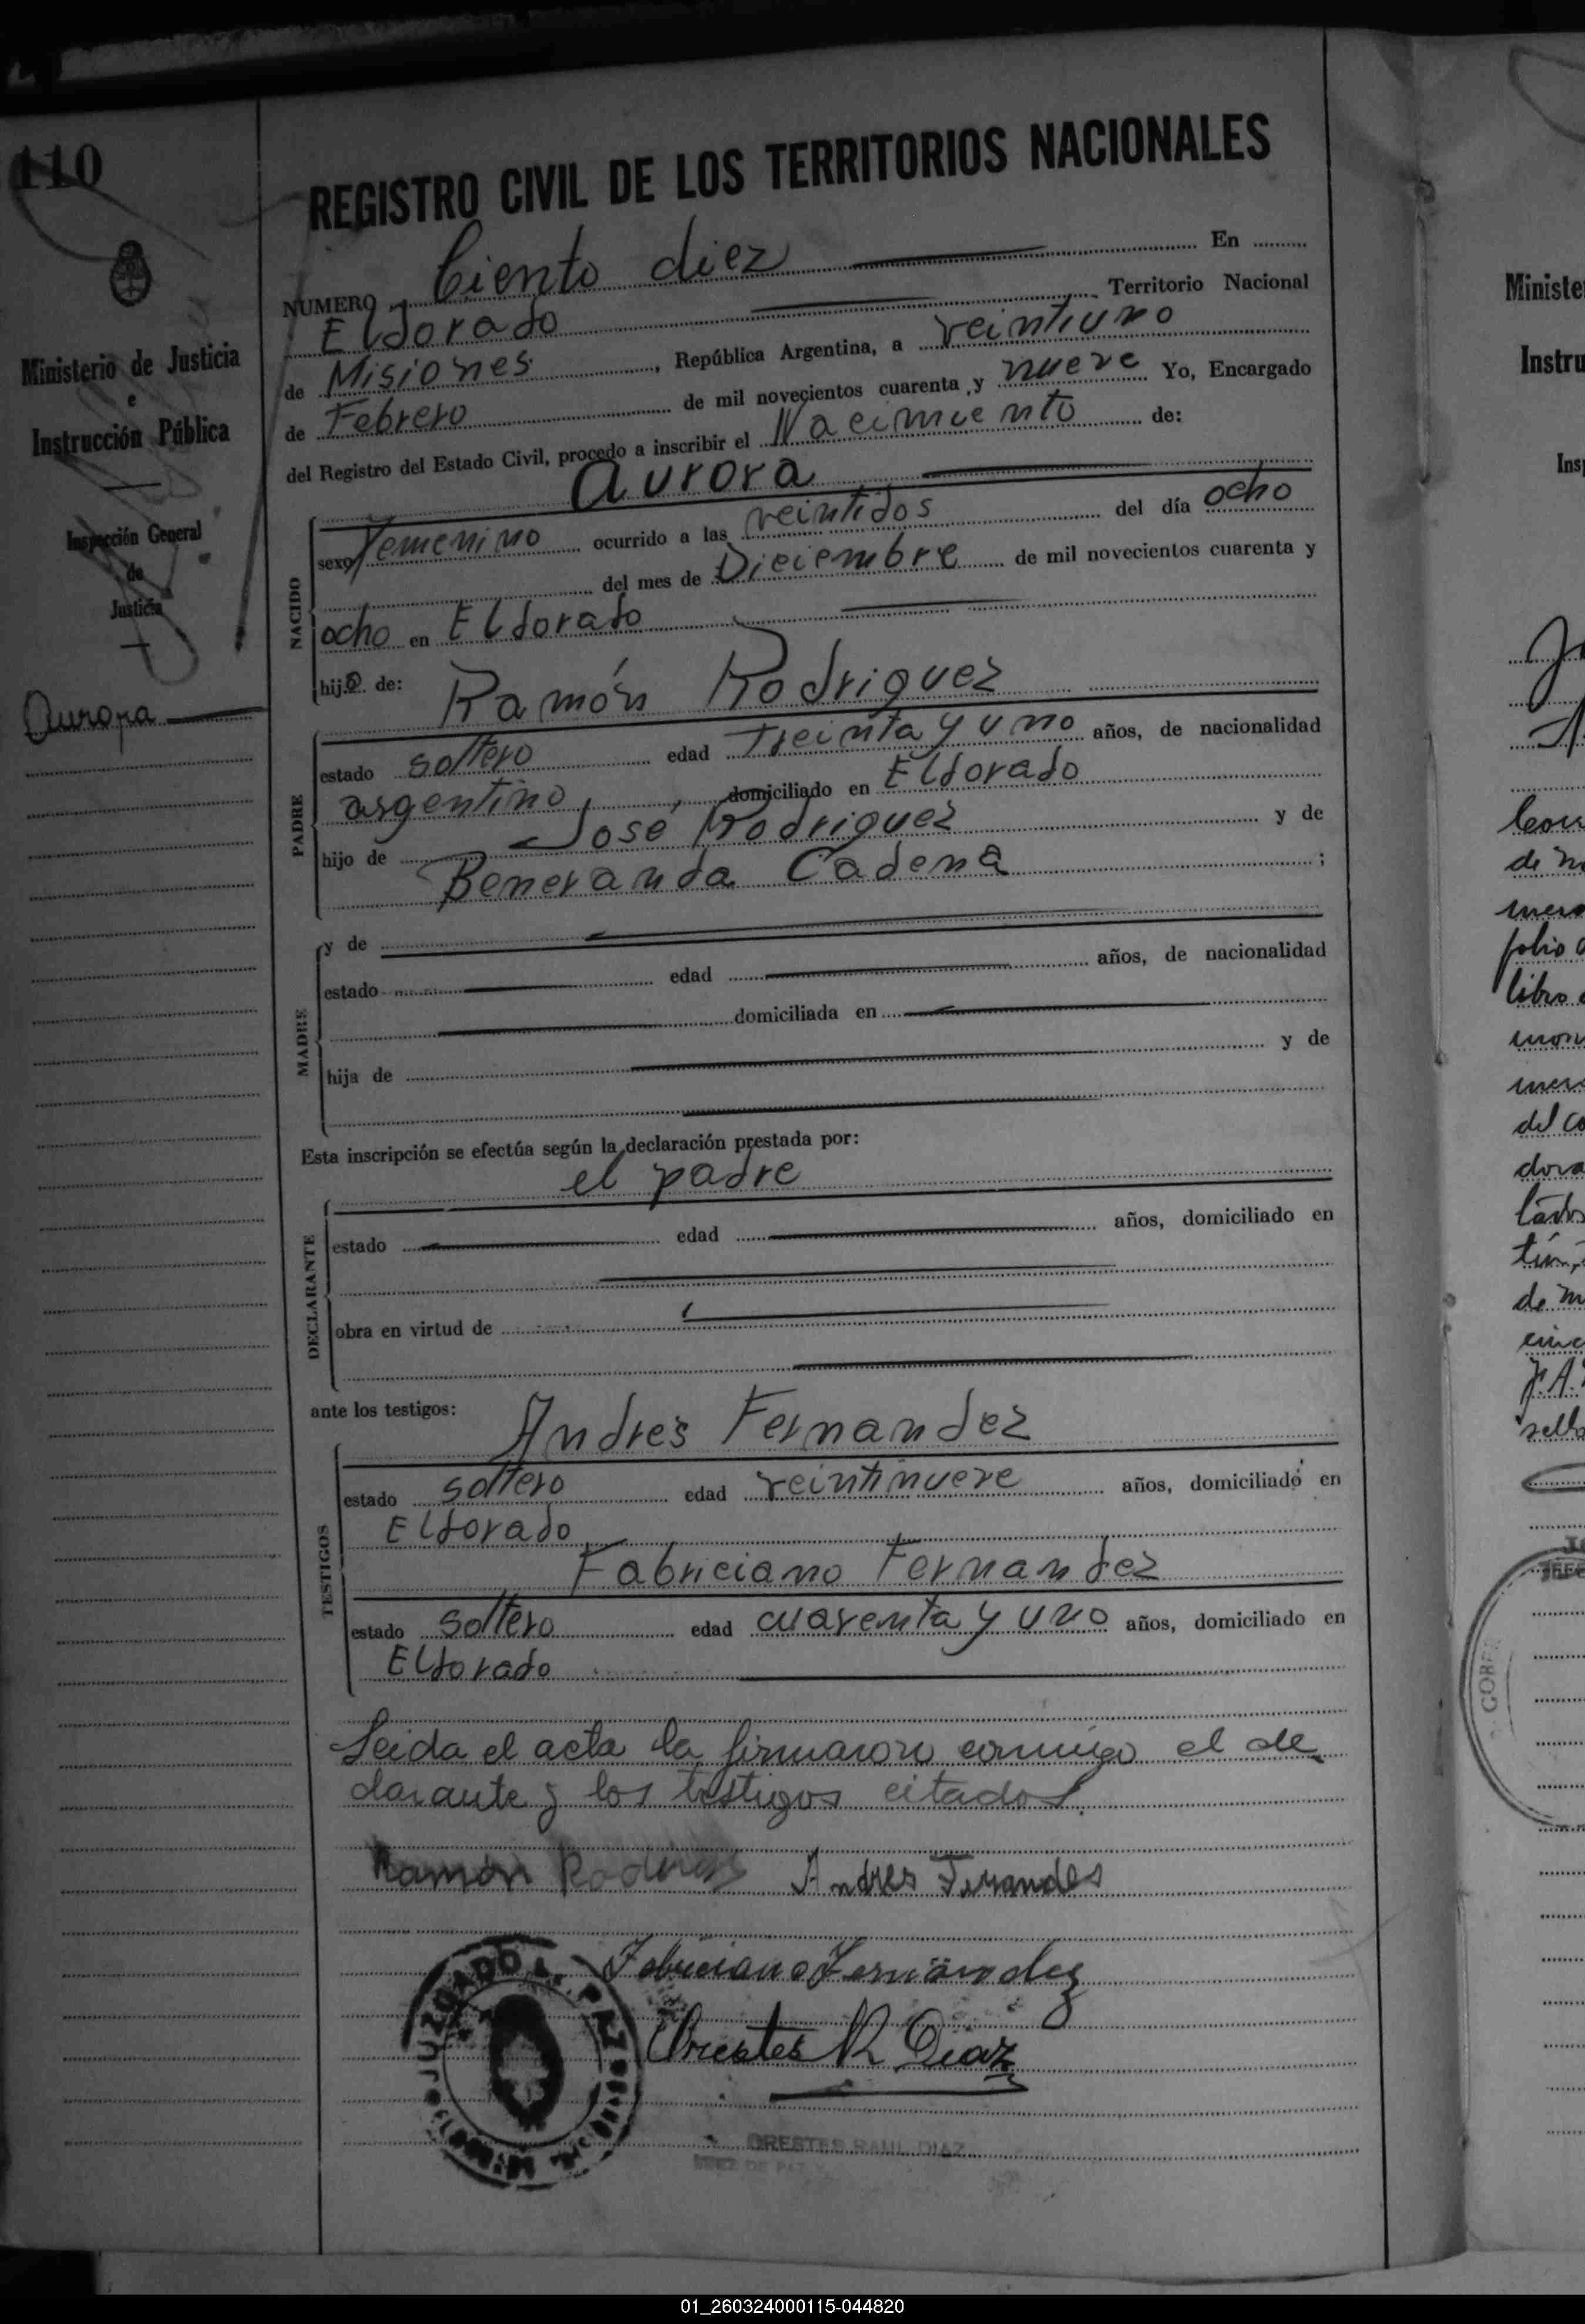 110
Ministerio de Justicia
e
Instrucción Pública
Inspección General
de
Justicia
Aurora
REGISTRO CIVIL DE LOS TERRITORIOS NACIONALES
NUMERO Ciento diez En
Eldorado Territorio Nacional
de Misiones, República Argentina, a veintiuno
de Febrero de mil novecientos cuarenta y nueve Yo, Encargado
del Registro del Estado Civil, procedo a inscribir el Nacimiento de:
Aurora
NACIDO
sexo Femenino ocurrido a las veintidos del día ocho
del mes de Diciembre de mil novecientos cuarenta y
ocho en Eldorado
hija de: Ramón Rodriguez
PADRE
estado soltero edad Treinta y uno años, de nacionalidad
argentino, domiciliado en Eldorado
hijo de José Rodriguez y de
Beneranda Cadena ;
MADRE
y de
estado edad años, de nacionalidad
domiciliada en
hija de y de
Esta inscripción se efectúa según la declaración prestada por:
el padre
DECLARANTE
estado edad años, domiciliado en
obra en virtud de
ante los testigos: Andres Fernandez
TESTIGOS
estado soltero edad veintinueve años, domiciliado en
Eldorado
Fabriciano Fernandez
estado soltero edad cuarenta y uno años, domiciliado en
Eldorado
Leida el acta la firmaron conmigo el de
clarante y los testigos citados.
Ramón Rodriguez Andres Fernandes
Fabriciano Fernández
Orestes R Diaz
JUZGADO DE PAZ
ORESTES RAUL DIAZ
JUEZ DE PAZ
Ministe
Instru
Ins
de m
folio
libro
del co
de m
J.A.
sello
GOBE
01_260324000115-044820